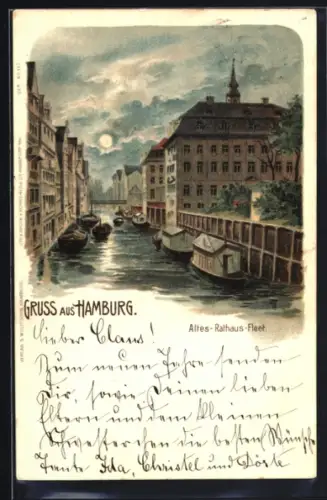 GRUSS AUS HAMBURG.
Altes-Rathaus-Fleet.
Lieber Claus!
Zum neuen Jahre senden
Dir, sowie Deinen lieben
Eltern und dem kleinen
Schwesterchen die besten Wünsche
Tante Ida, Christel und Dörte